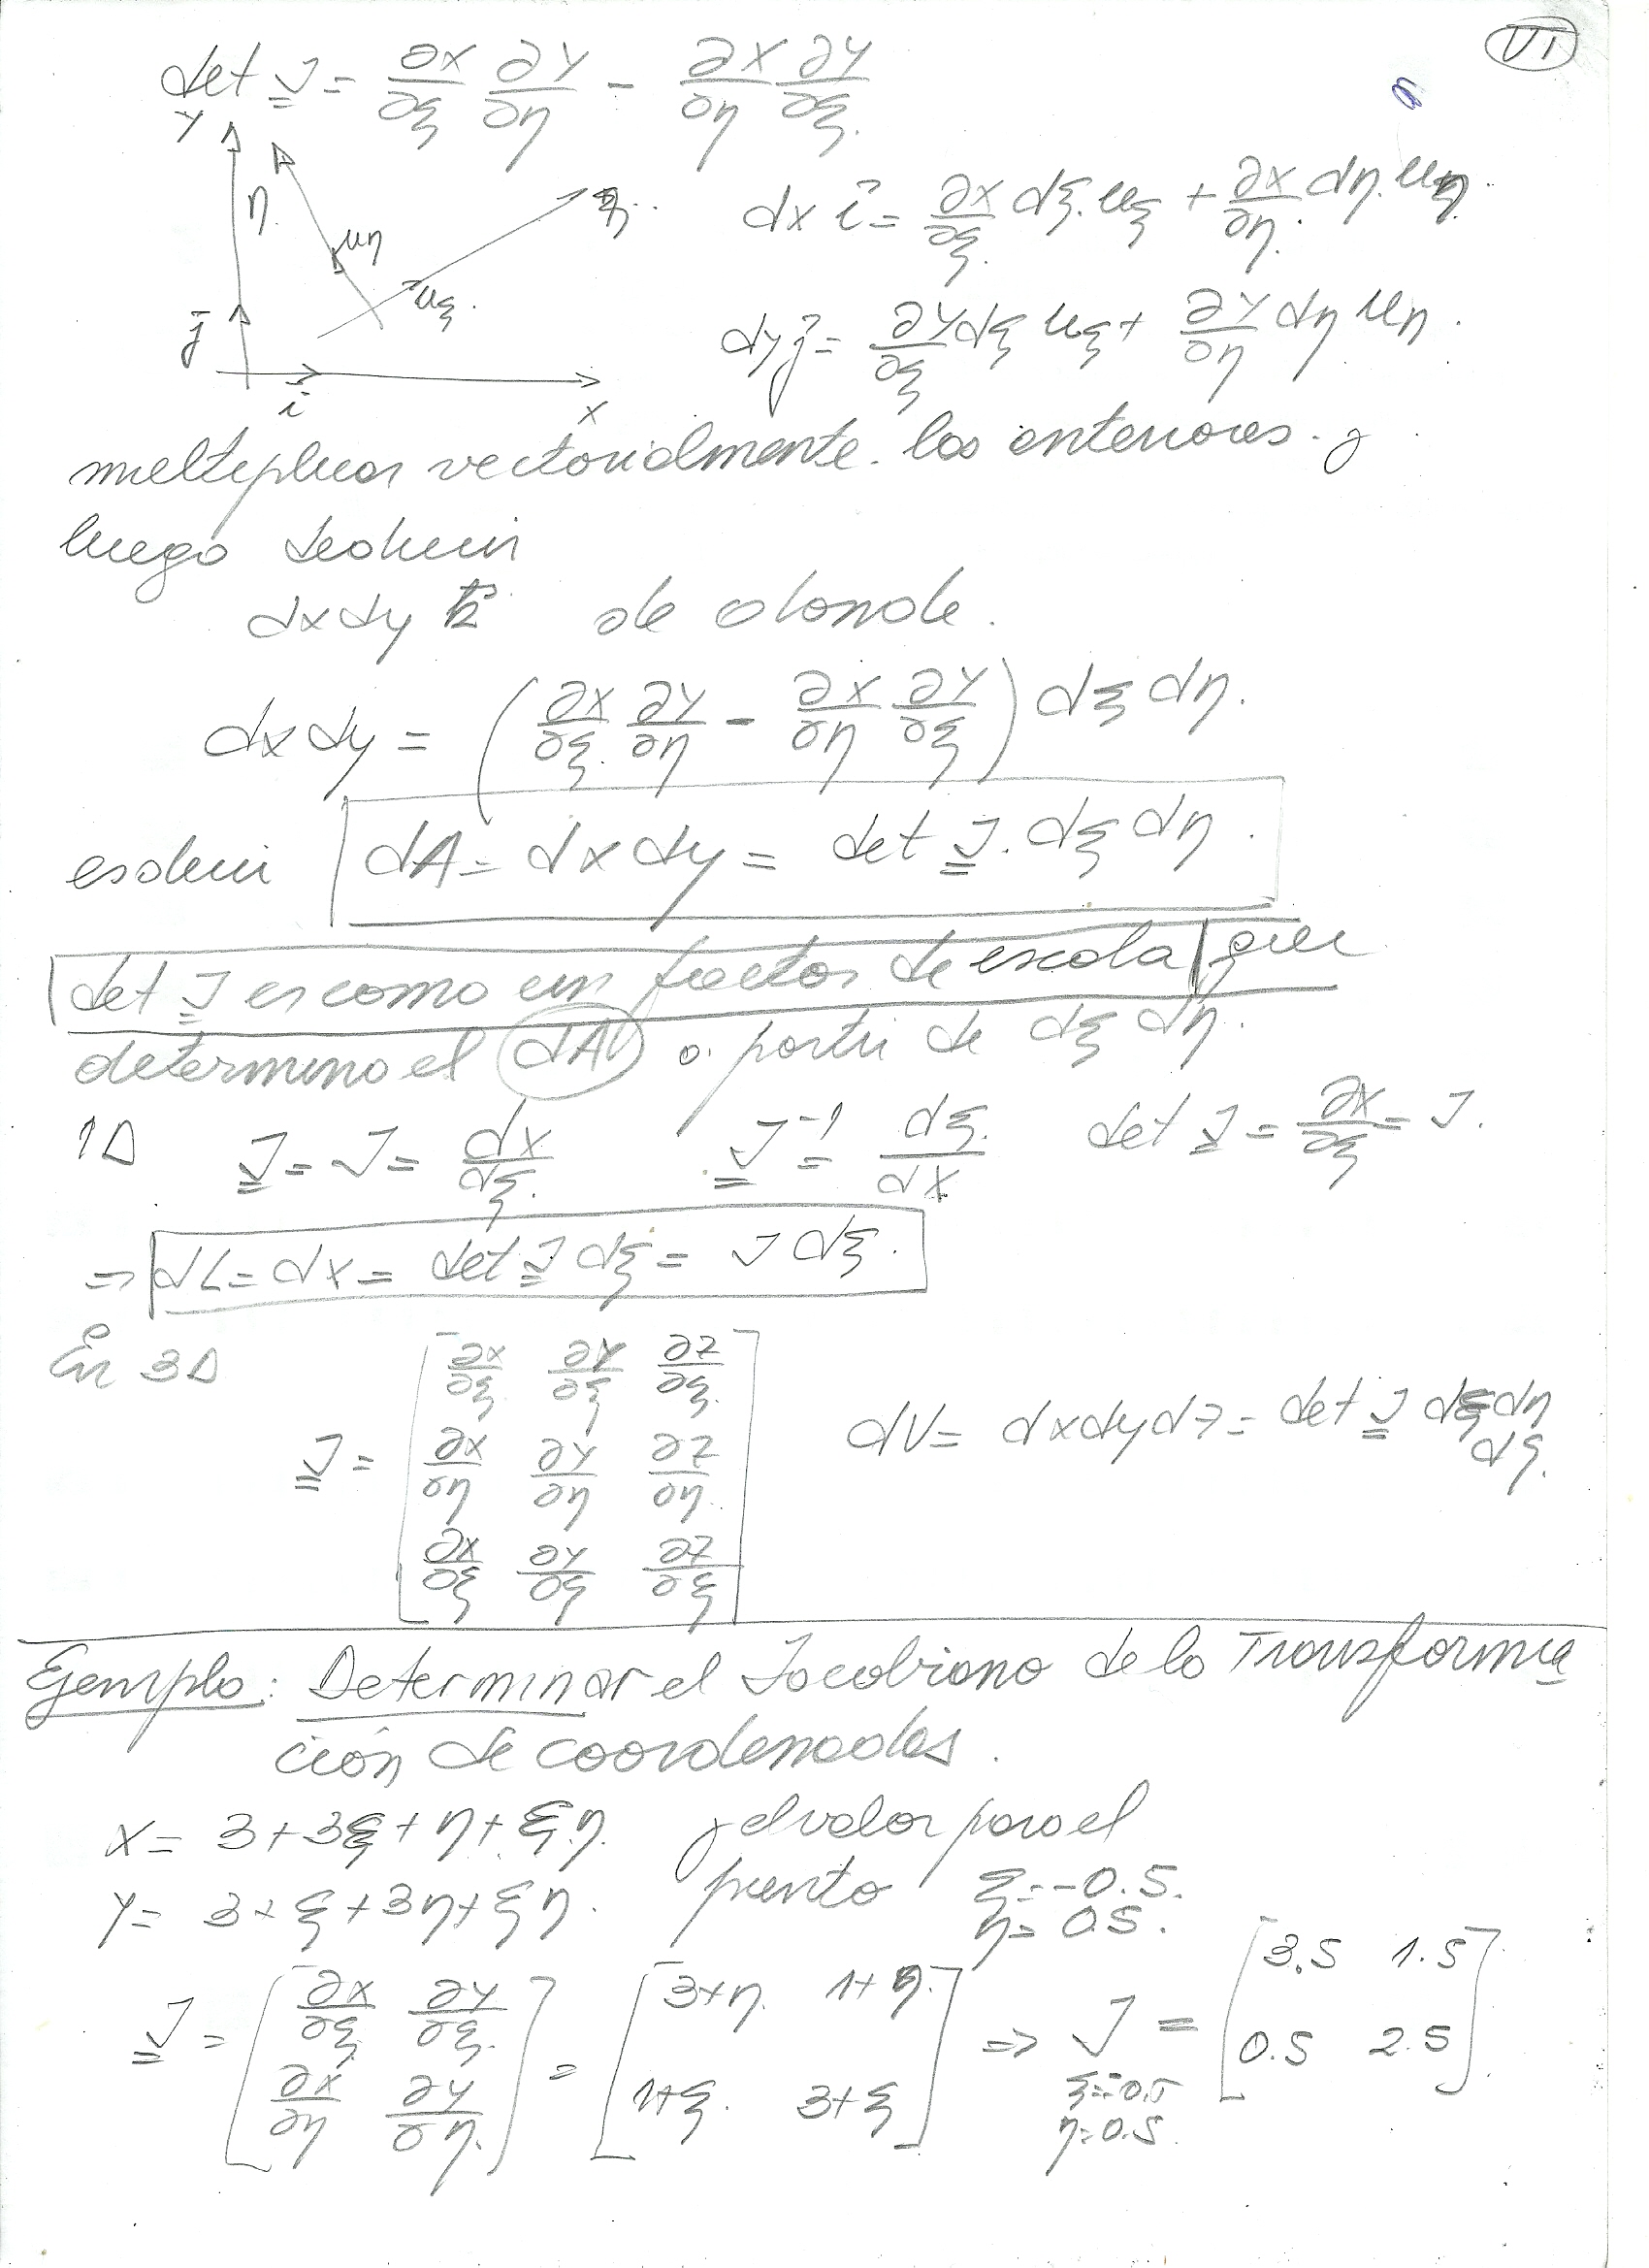 VI
det J = ∂x/∂ξ ∂y/∂η - ∂x/∂η ∂y/∂ξ.
y η. uη ξ. uξ. j i x
dx i = ∂x/∂ξ. dξ. uξ + ∂x/∂η. dη. uη.
dy j = ∂y/∂ξ dξ uξ + ∂y/∂η dη uη.
multiplicar vectorialmente los anteriores y
luego deducir
dx dy k de donde.
dx dy = (∂x/∂ξ. ∂y/∂η - ∂x/∂η ∂y/∂ξ) dξ dη.
es decir dA = dx dy = det J. dξ dη.
det J es como un factor de escala que
determina el dA a partir de dξ dη.
1D J = J = dx/dξ. J⁻¹ = dξ./dx det J = ∂x/∂ξ = J.
⇒ dL = dx = det J dξ = J dξ.
En 3D
J = [∂x/∂ξ ∂y/∂ξ ∂z/∂ξ.
∂x/∂η ∂y/∂η ∂z/∂η.
∂x/∂ξ ∂y/∂ς ∂z/∂ξ]
dV = dx dy dz = det J dξ dη
dς.
Ejemplo: Determinar el Jacobiano de la Transforma
ción de coordenadas.
x = 3 + 3ξ + η + ξ.η. y el valor para el
y = 3 + ξ + 3η + ξη. punto ξ = -0.5.
η = 0.5.
J = [∂x/∂ξ ∂y/∂ξ. = [3+η. 1+η. ⇒ J = [3.5 1.5
∂x/∂η ∂y/∂η.] 1+ξ. 3+ξ] 0.5 2.5].
ξ=-0.5
η=0.5.